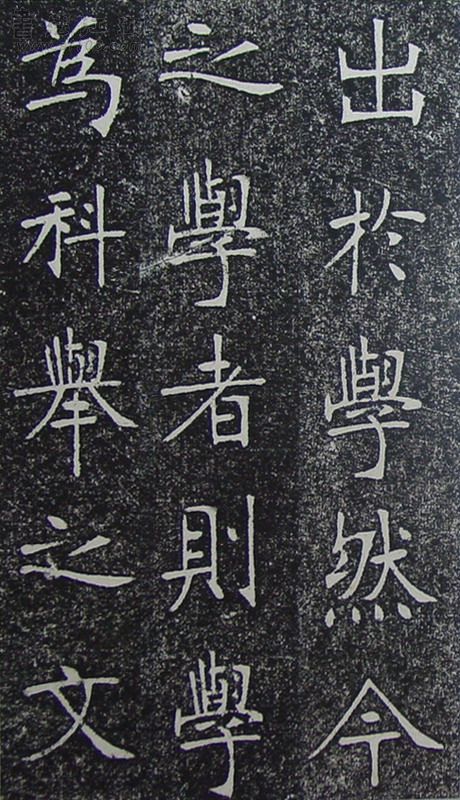 出於學然今
之學者則學
為科舉之文